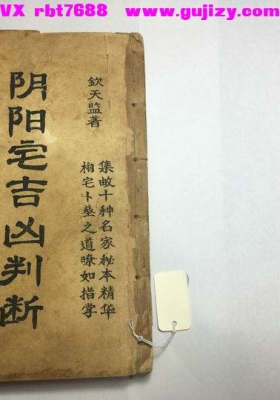 VX rbt7688  www.gujizy.com
钦天监著
集数十种名家秘本精华
相宅卜墓之道瞭如指掌
阴阳宅吉凶判断